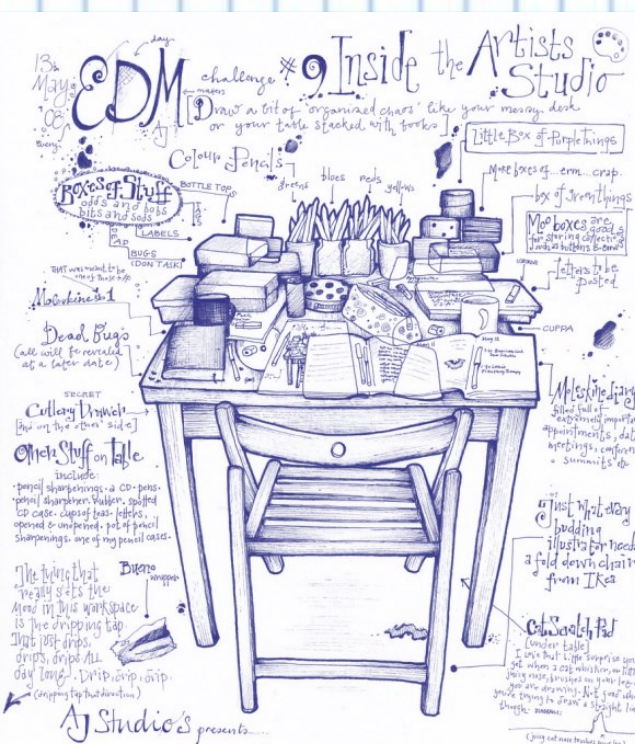 13th May 08
EDM
day
challenge #9 Inside the Artists Studio
makers
[Draw a bit of 'organized chaos' like your messy desk
or your table stacked with books]
AJ
Colour Pencils
greens
blues
reds
yellows
Little Box of Purple Things
More boxes of...erm...crap.
box of green things
Moo boxes are
good
for storing
such as buttons &
letters to be
posted
CUPPA
Boxes of Stuff
odds and bobs
bits and sods
BOTTLE TOPS
LABELS
DEAD
BUGS
(DON'T ASK)
THAT was meant to be
Moleskine 1
Dead Bugs
(all will be revealed
at a later date)
SECRET
Cutlery Drawer
[and on the other side]
Other Stuff on Table
include:
·pencil sharpenings·a CD·pens·
·pencil sharpener·rubber·spotted
CD case·cups of teas·letters·
opened & unopened·pot of pencil
sharpenings·one of my pencil cases·
The thing that
really sets the
mood in this workspace
is the dripping tap.
That just drips,
drips, drips ALL
day long. Drip, drip, drip.
(dripping tap that direction)
Bueno
wrapper
Moleskine diary
filled full of
extremely
appointments,
meetings,
summits etc
Just what every
budding
illustrator needs
a fold down chair
from IKea
Cat Scratch Pad
[under table]
I love that little surprise you
get when a cat whisker, or
nose, brushes on your leg
you are drawing. Not good when
you're trying to draw a straight line
though.
AJ Studio's presents.....